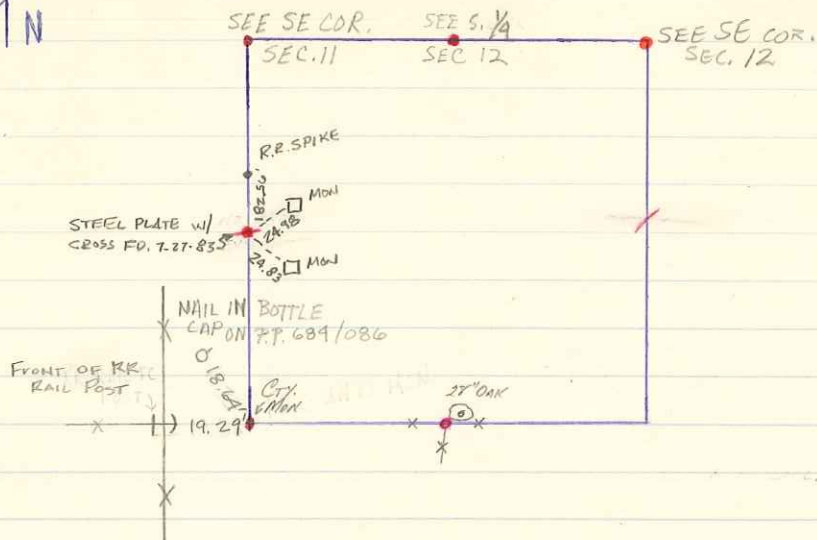 1 N
SEE SE COR.
SEC. 11
SEE S. 1/4
SEC 12
SEE SE COR.
SEC. 12
R.R. SPIKE
MON
24.98
STEEL PLATE W/
CROSS FD. 7-27-83
24.83
MON
NAIL IN BOTTLE
CAP ON P.P. 684/086
18.64'
FRONT OF RR
RAIL POST
CTY.
MON
19.29'
OAK